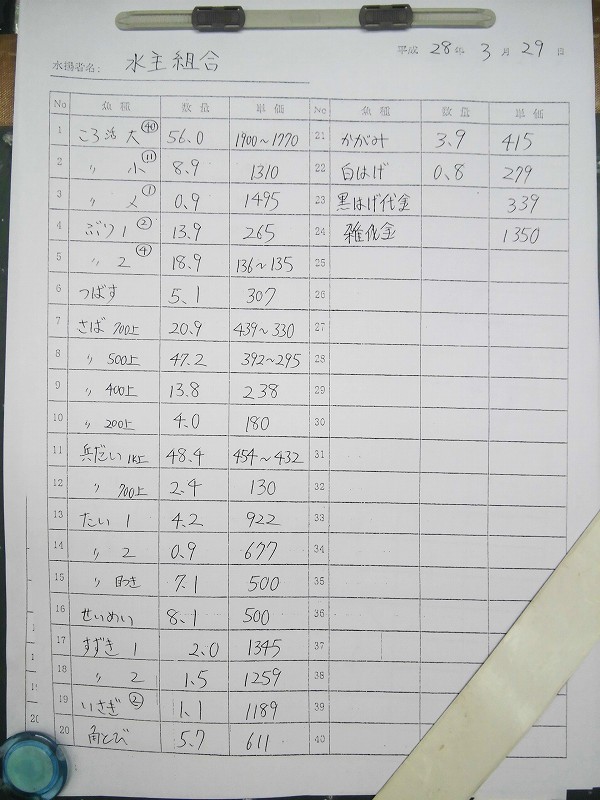 平成 28年 3月 29日
水揚者名: 水主組合
No 魚種 数量 単価
1 ころ活 大 ㊵ 56.0 1900~1770
2 〃 小 ⑪ 8.9 1310
3 〃 〆 ① 0.9 1495
4 ぶり 1 ② 13.9 265
5 〃 2 ④ 18.9 136~135
6 つばす 5.1 307
7 さば 700上 20.9 439~330
8 〃 500上 47.2 392~295
9 〃 400上 13.8 238
10 〃 200上 4.0 180
11 兵だい 1k上 48.4 454~432
12 〃 700上 2.4 130
13 たい 1 4.2 922
14 〃 2 0.9 677
15 〃 7.1 500
16 せいめい 8.1 500
17 すずき 1 2.0 1345
18 〃 2 1.5 1259
19 いさぎ ② 1.1 1189
20 角とび 5.7 611
No 魚種 数量 単価
21 かがみ 3.9 415
22 白はげ 0.8 279
23 黒はげ代金 339
24 雑代金 1350
25
26
27
28
29
30
31
32
33
34
35
36
37
38
39
40